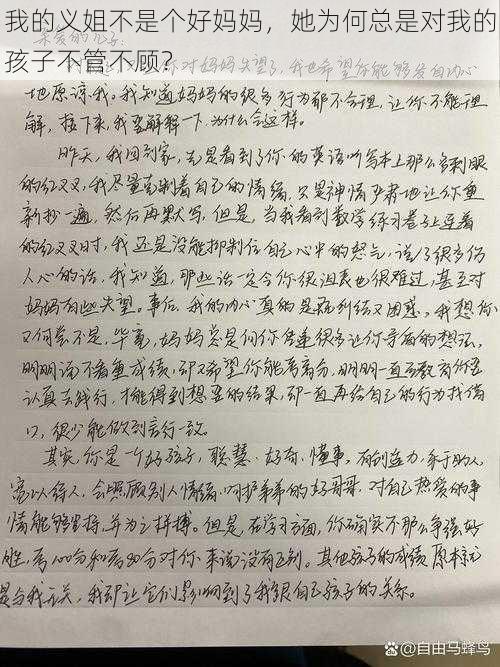 我的义姐不是个好妈妈，她为何总是对我的
孩子不管不顾？
地原谅我。我知道妈妈的很多行为都不合理，让你不能理
解，接下来，我要解释一下为什么会这样。
昨天，我回到家，先是看到了你的英语听写本上那么多刺眼
的红叉叉，我尽量克制着自己的情绪，只是神情严肃地让你重
新抄一遍，然后再默写，但是，当我看到数学练习卷子上连着
的红叉叉时，我还是没能抑制住自己心中的怒气，说了很多伤
人心的话，我知道，那些话一定令你很沮丧也很难过，甚至对
妈妈有些失望。事后，我的内心真的是既纠结又困惑，我想你
又何尝不是，毕竟，妈妈总是向你传递很多让你矛盾的想法，
明明说不看重成绩，却又希望你能考高分，明明一直在教育你要
认真去践行，才能得到想要的结果，却一直再给自己的行为找借
口，很少能做到言行一致。
其实，你是一个好孩子，聪慧、好奇、懂事，有创造力，乐于助人，
宽以待人，会照顾别人情绪，呵护弟弟的好哥哥，对自己热爱的事
情能够坚持，并为之拼搏。但是，在学习方面，你确实不那么争强好
胜，考100分和考80分对你来说没有区别。其他孩子的成绩原本就
是与我无关，我却让它们影响到了我跟自己孩子的关系。
@自由马蜂鸟